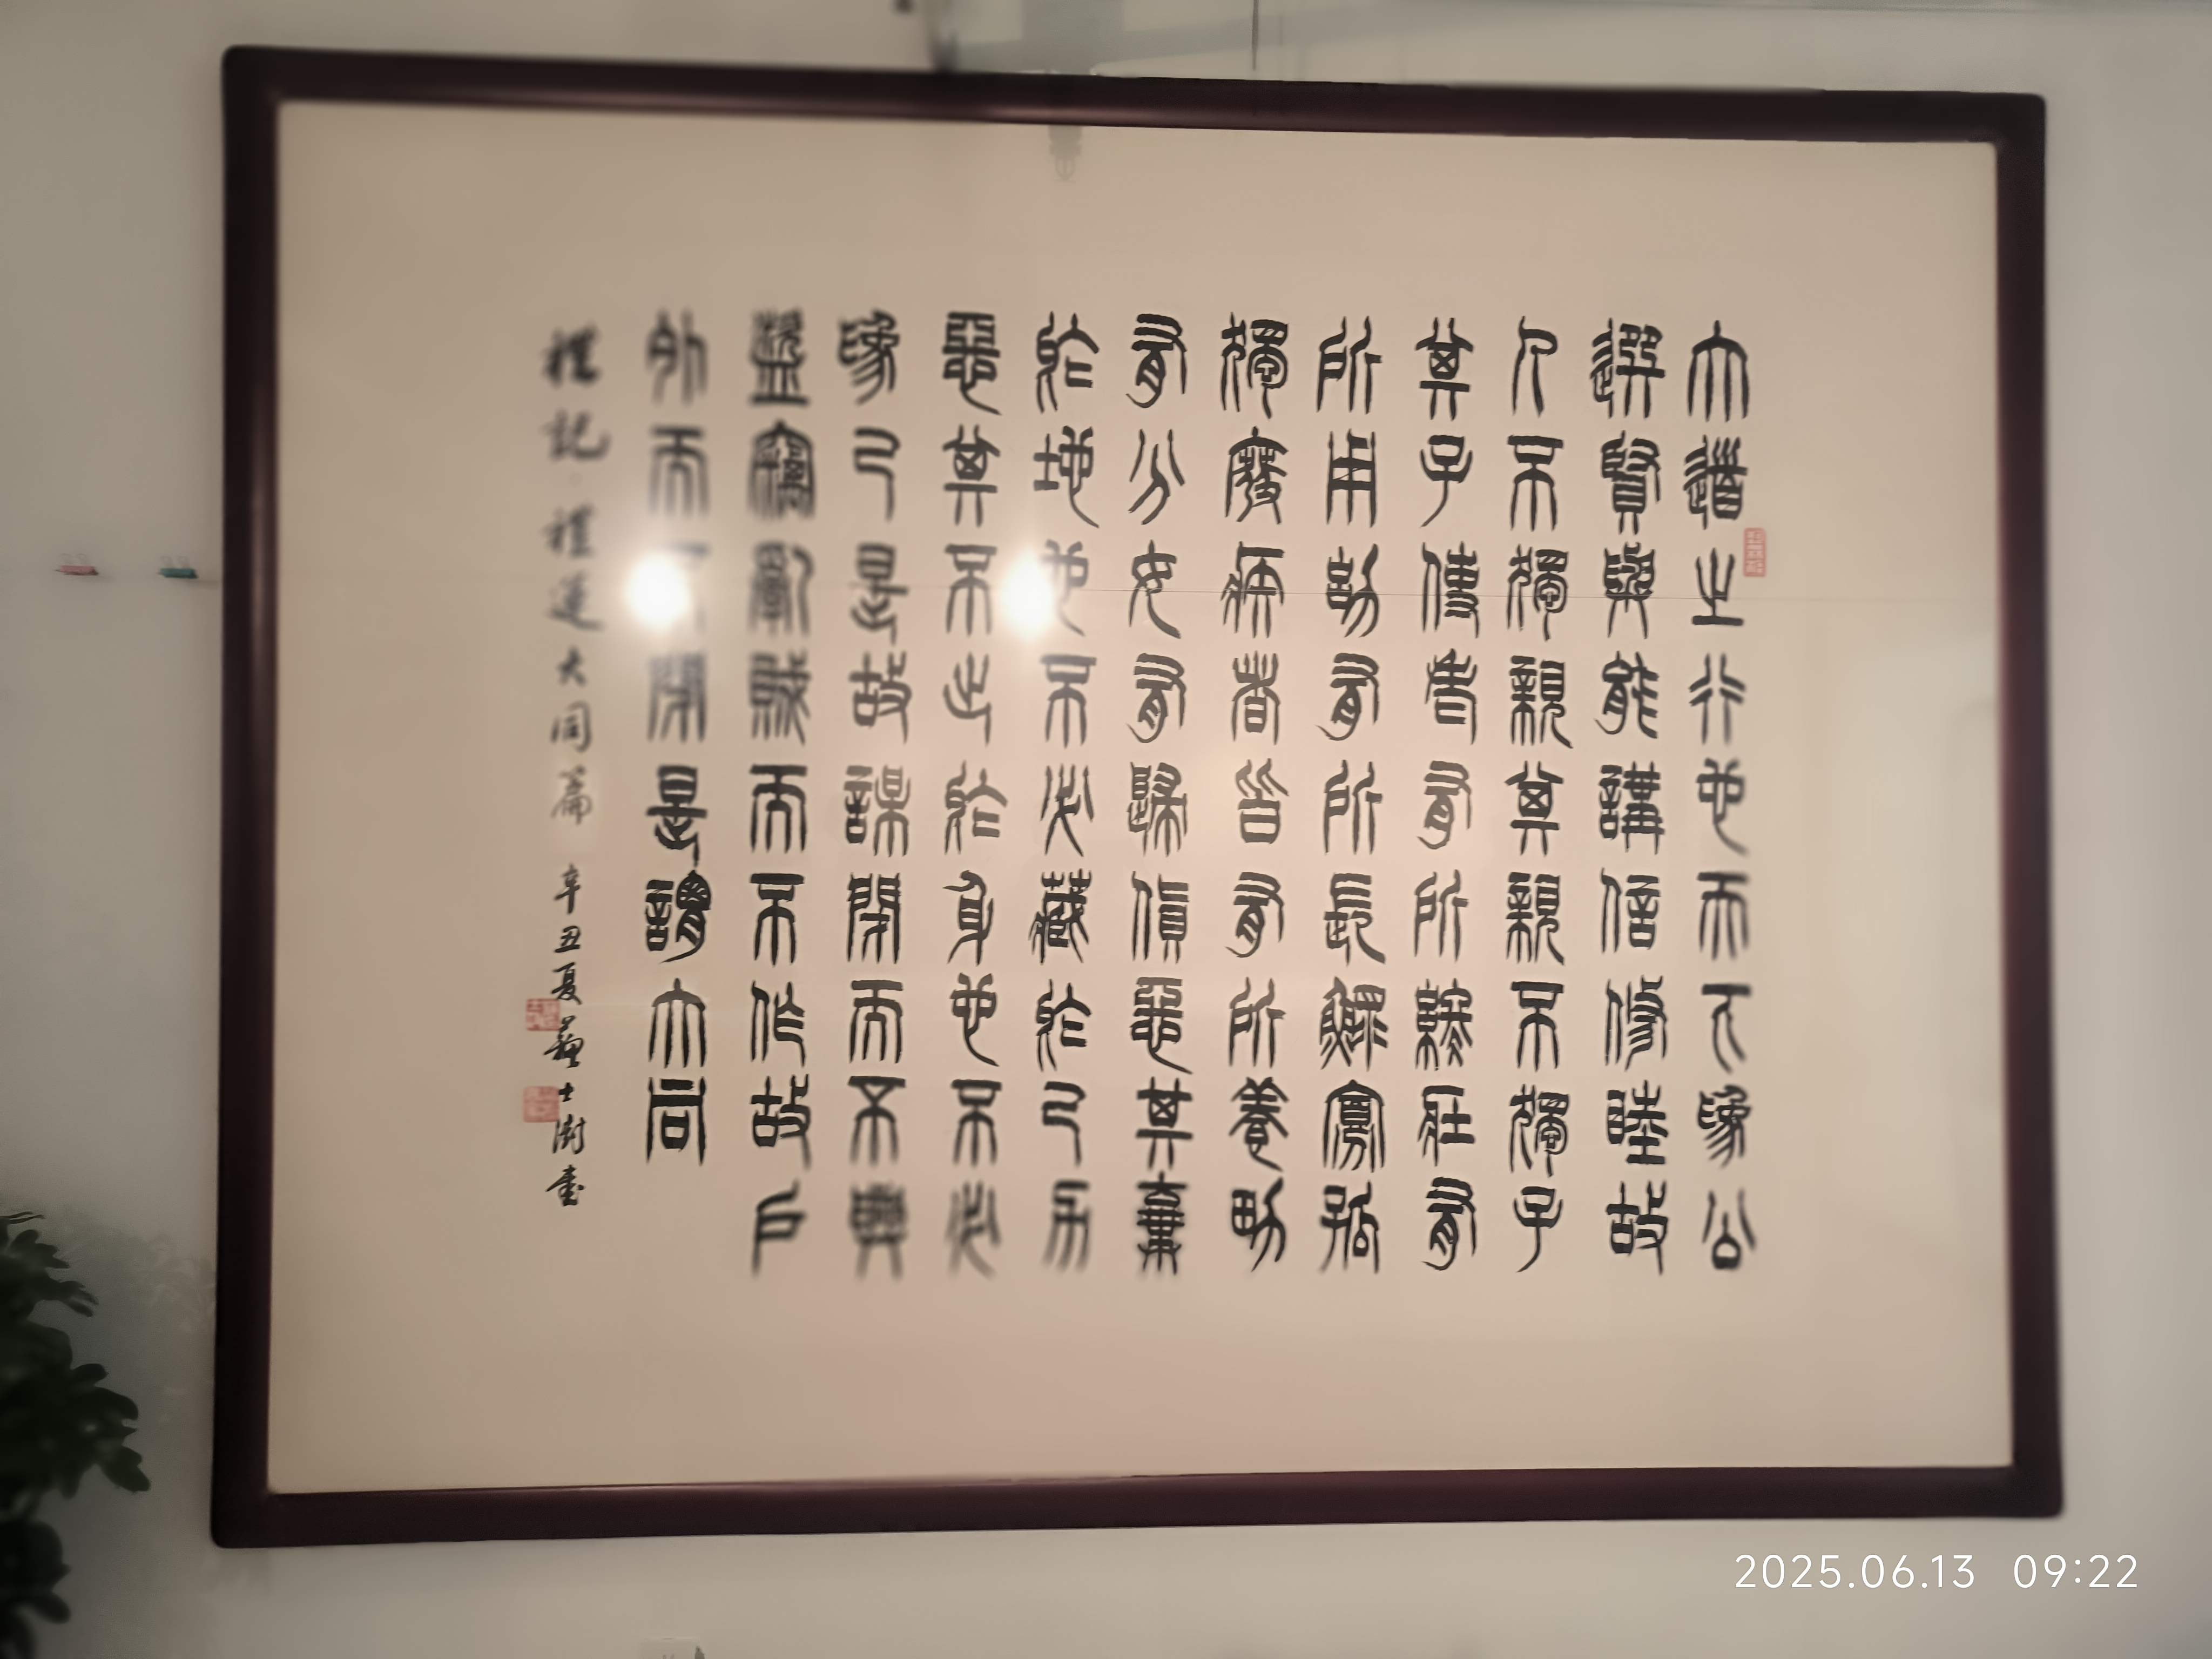 大道之行也天下為公
選賢與能講信修睦故
人不獨親其親不獨子
其子使老有所終壯有
所用幼有所長鰥寡孤
獨廢疾者皆有所養男
有分女有歸貨惡其棄
於地也不必藏於己力
惡其不出於身也不必
為己是故謀閉而不興
盜竊亂賊而不作故戶
外而閉是謂大同
禮記·禮運大同篇 辛丑夏蘇士澍書
2025.06.13 09:22